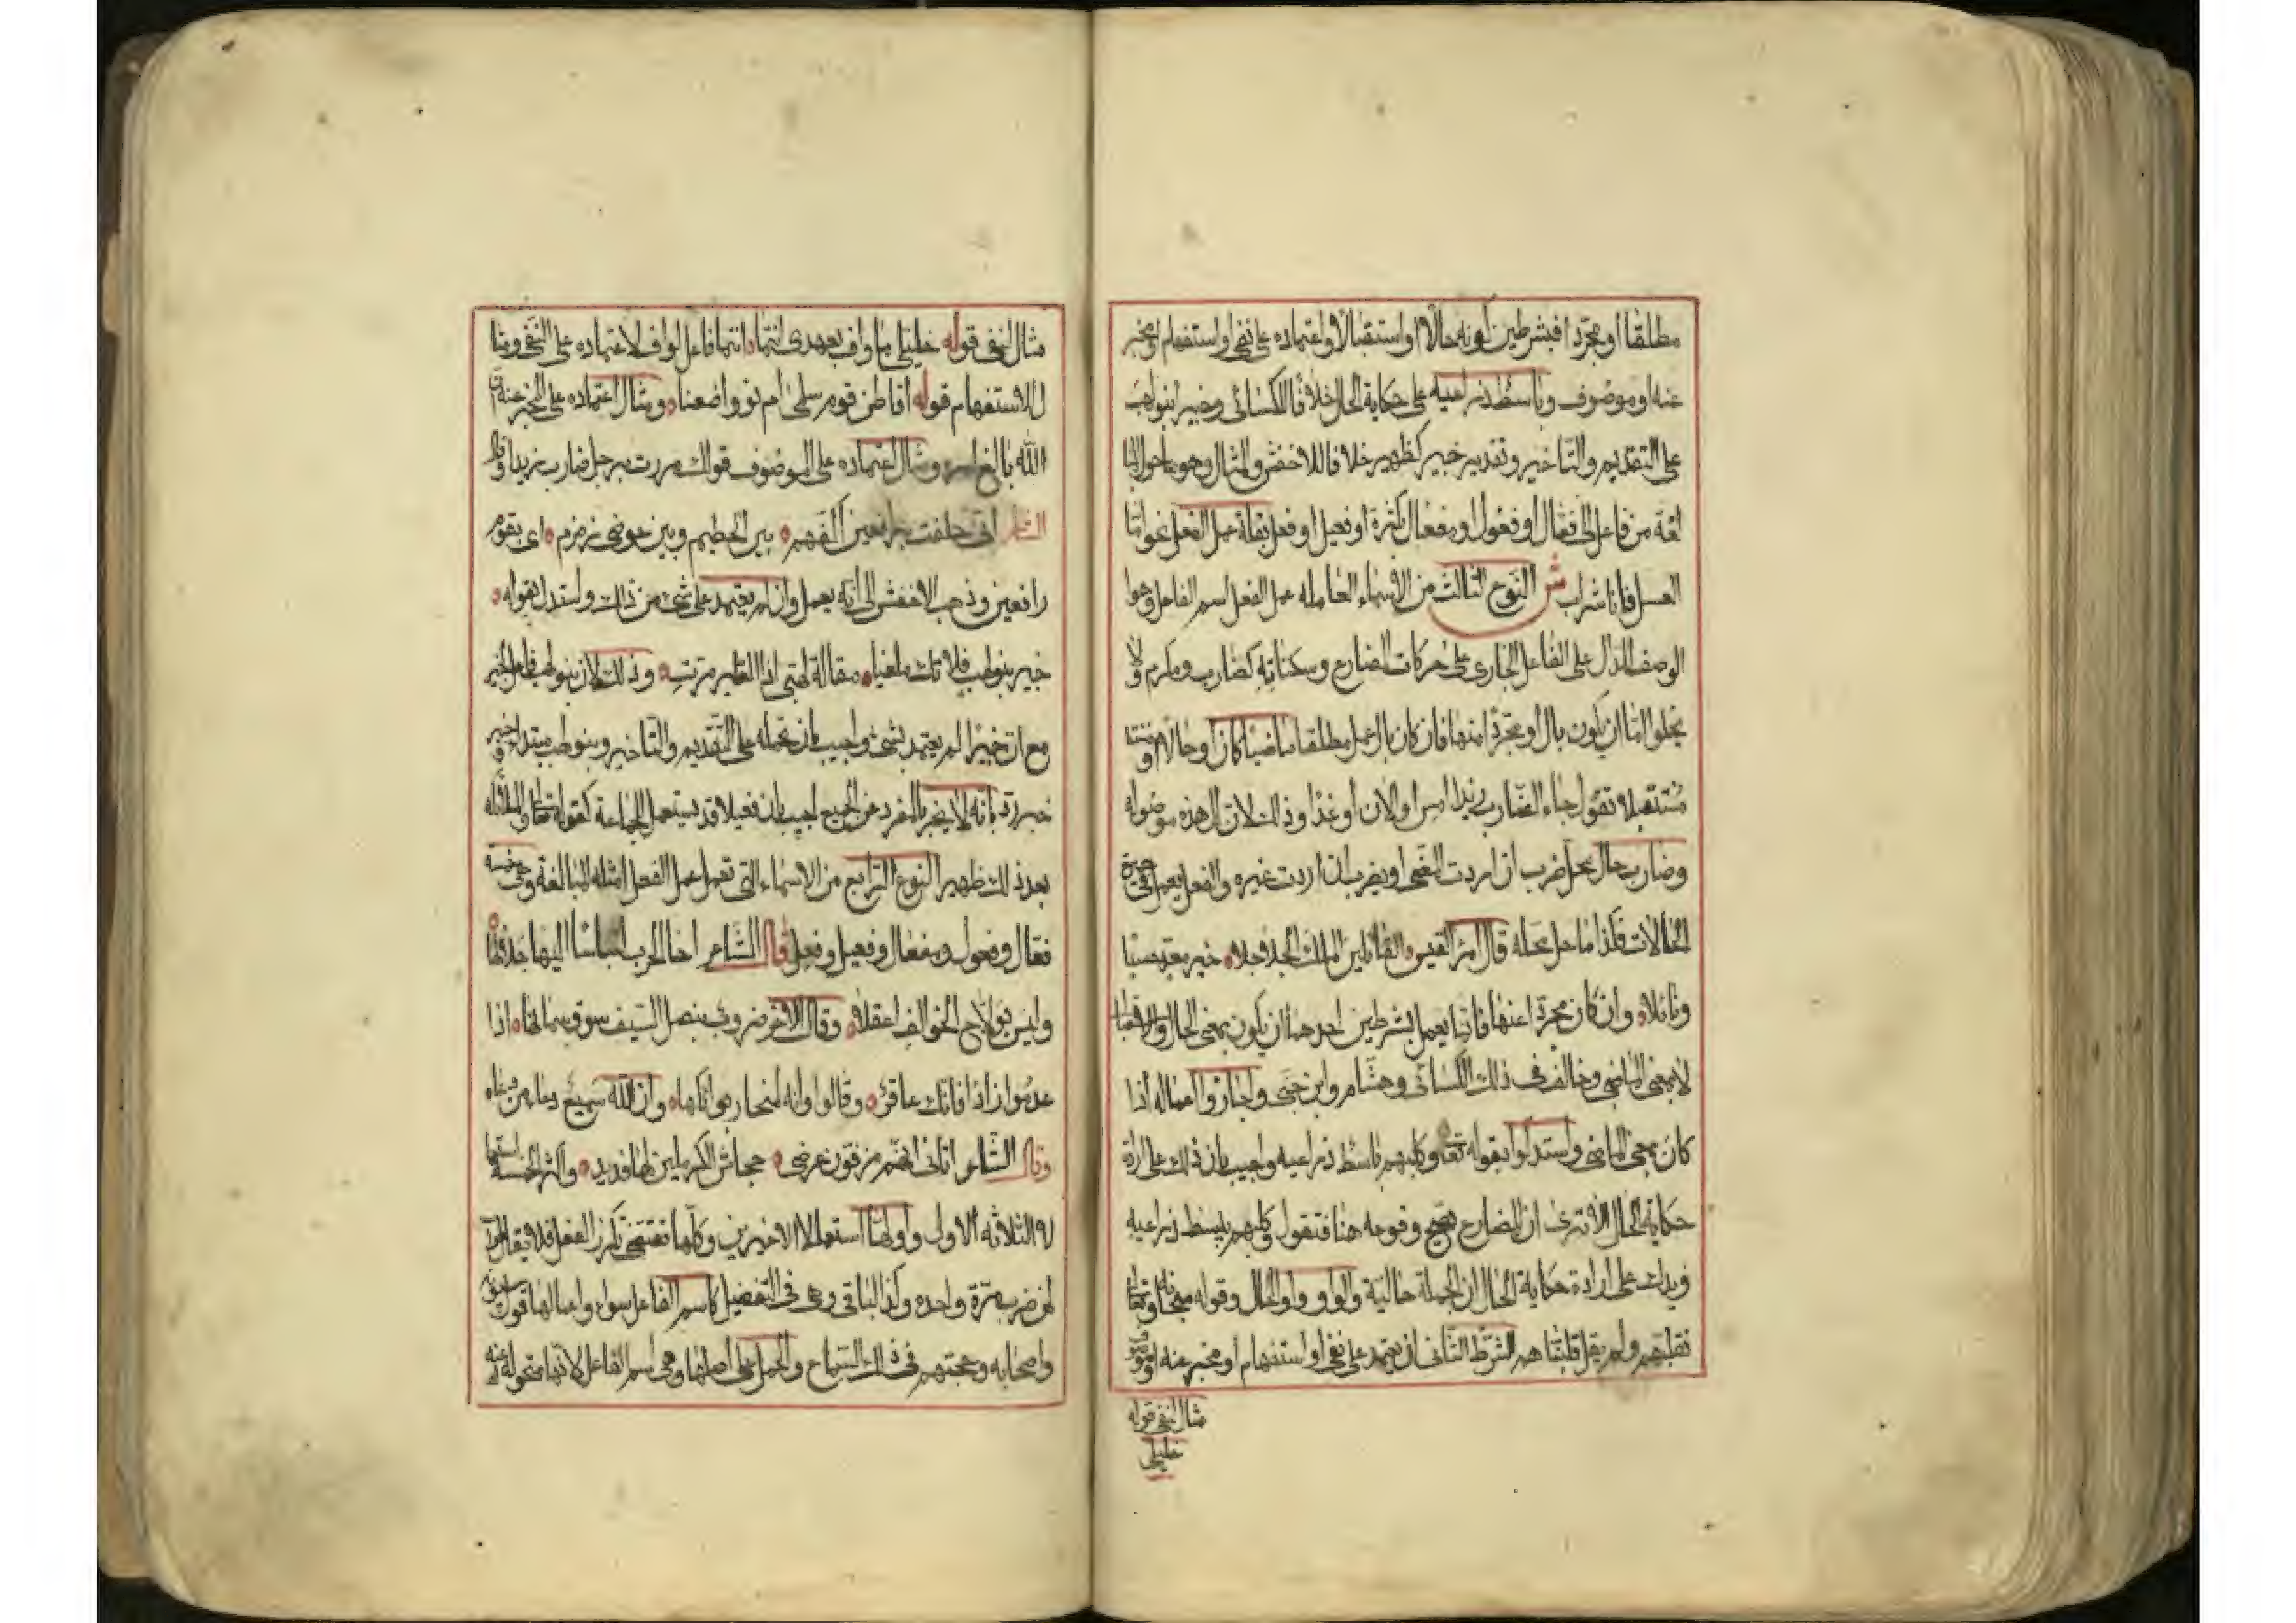 مطلقا أو مجردا فبشرطين كونه حالا او استقبالا واعتماده على نفي او استفهام او مخبر
عنه او موصوف وباسط ذراعيه على حكاية الحال خلافا للكسائي وخبير بنو لهب
على التقديم والتاخير وتقديره خبير كظهير خلافا للاخفش والمثال وهو ما حول للمبا
لغة من فاعل الى فعال او فعول او مفعال بكثرة او فعيل او فعل بقلة عمل الفعل نحو اما
العسل فانا شراب ش النوع الثالث من الاسماء العاملة عمل الفعل اسم الفاعل وهو
الوصف الدال على الفاعل الجاري على حركات المضارع وسكناته كضارب ومكرم ولا
يخلوا اما ان يكون بال أو مجردا منها فان كان بال عمل مطلقا ماضيا كان أو حالا او
مستقبلا تقول جاء الضارب زيدا امس او الان أو غدا وذلك لان ال هذه موصوله
وضارب حال محل ضرب ان اردت المضي او يضرب ان اردت غيره والفعل يعمل في جميع
الحالات فكذا ما حل محله قال امرؤ القيس القاتلين الملك الحلاحلا خير معد حسبا
ونائلا وان كان مجردا عنها فانما يعمل بشرطين احدهما ان يكون بمعنى الحال والاستقبال
لا بمعنى الماضي وخالف في ذلك الكسائي وهشام وابن جني واجازوا اعماله اذا
كان بمعنى الماضي واستدلوا بقوله تعالى وكلبهم باسط ذراعيه واجيب بان ذلك على ارادة
حكاية الحال الا ترى ان المضارع يصح وقوعه هنا فتقول وكلبهم يبسط ذراعيه
ويدلك على ارادة حكاية الحال ان الجملة حالية والواو واو الحال وقوله سبحانه وتعالى
نقلبهم ولم يقل قلبناهم الشرط الثاني ان يعتمد على نفي او استفهام او مخبر عنه او موصوف
مثال النفي قوله
خليلي
مثال النفي قوله خليلي ما واف بعهدي انتما انتما فاعل لواف لاعتماده على النفي ومثا
ل الاستفهام قوله اقاطن قوم سلمى ام نووا ضعنا ومثال اعتماده على المخبر عنه ان
الله بالغ امره ومثال اعتماده على الموصوف قولك مررت برجل ضارب زيدا وقول
الشاعر اني حلفت برافعين اكفهم بين الحطيم وبين حوضي زمزم اي بقوم
رافعين وذهب الاخفش الى أنه يعمل وان لم يعتمد على شيء من ذلك واستدل بقوله
خبير بنو لهب فلا تك ملغيا مقالة لهبي اذا الطير مرت وذلك لان بنو لهب فاعل خبير
مع ان خبيرا لم يعتمد بشيء واجيب بان نحمله على التقديم والتاخير وبنو لهب مبتدا وخبير
خبر رد بانه لا يخبر بالمفرد عن الجمع اجيب بان فعيلا قد يستعمل للجماعة كقوله تعالى والملائكة
بعد ذلك ظهير النوع الرابع من الاسماء التي تعمل عمل الفعل امثلة المبالغة وهي خمسة
فعال وفعول ومفعال وفعيل وفعل قال الشاعر اخا الحرب لباسا اليها جلالها
وليس بولاج الخوالف اعقلا وقال الاخر ضروب بنصل السيف سوق سمانها اذا
عدموا زادا فانك عاقر وقالوا وانه لمنحار بوائكها وان الله سميع دعاء من دعاه
وقال الشاعر اتاني انهم مزقون عرضي جحاش الكرملين لها فديد واكثر الخمسة استعما
لا الثلاثة الاول واولها استعمالا الاخيرين وكلها تقتضي تكرر الفعل فلا يقال ضراب
لمن ضرب مرة واحده وكذا الباقي وهي في التفصيل كاسم الفاعل سواء واعمالها قول سيبويه
واصحابه وحجتهم في ذلك السماع والحمل على اصلها وهي اسم الفاعل لانها متحولة عنه